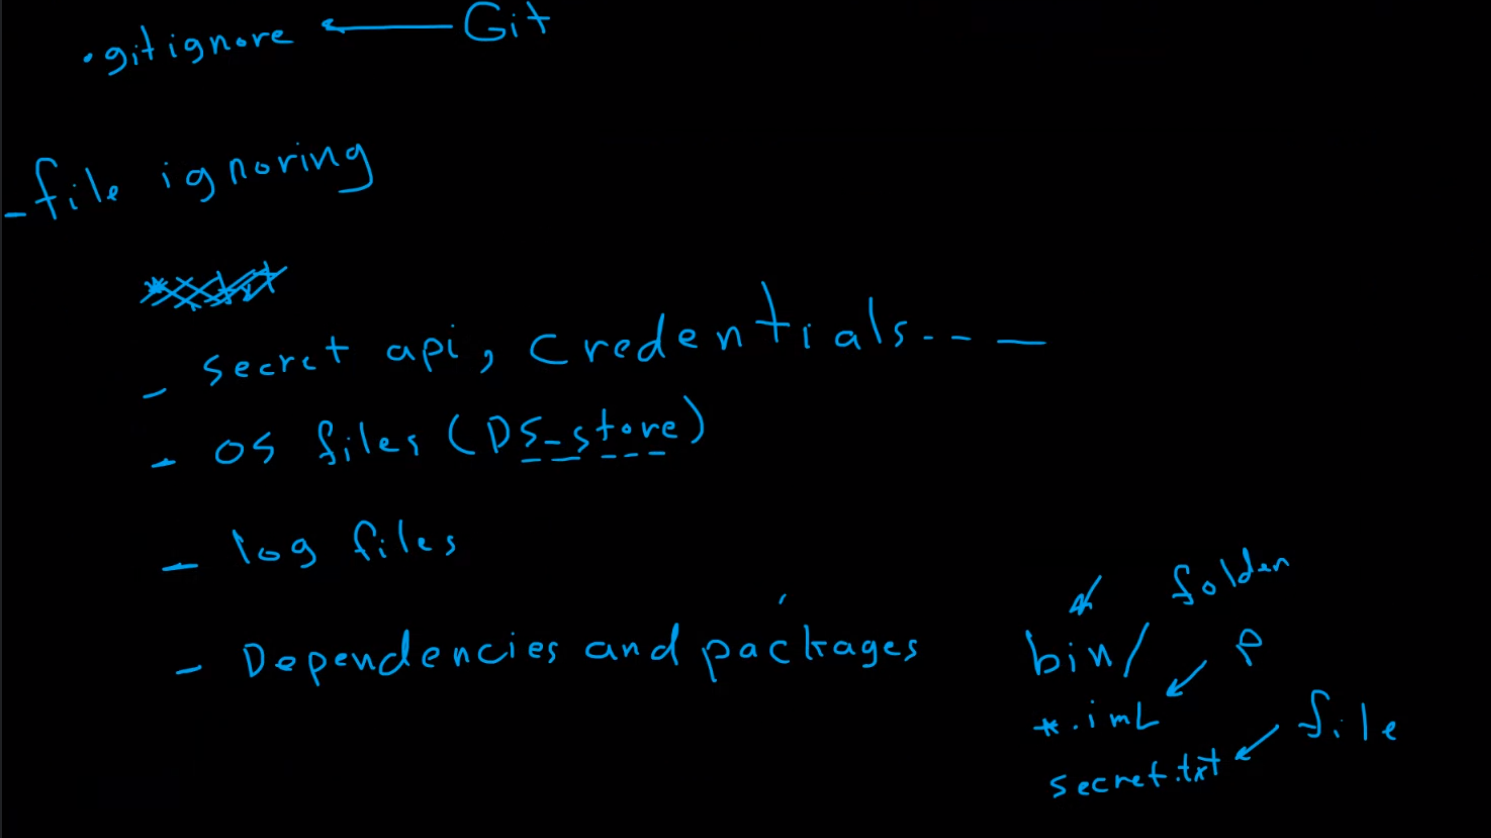 .gitignore ← Git
- file ignoring
- secret api, credentials-----
- OS files (DS_store)
- log files
- Dependencies and packages
folder
bin/
P
*.iml
file
secret.txt